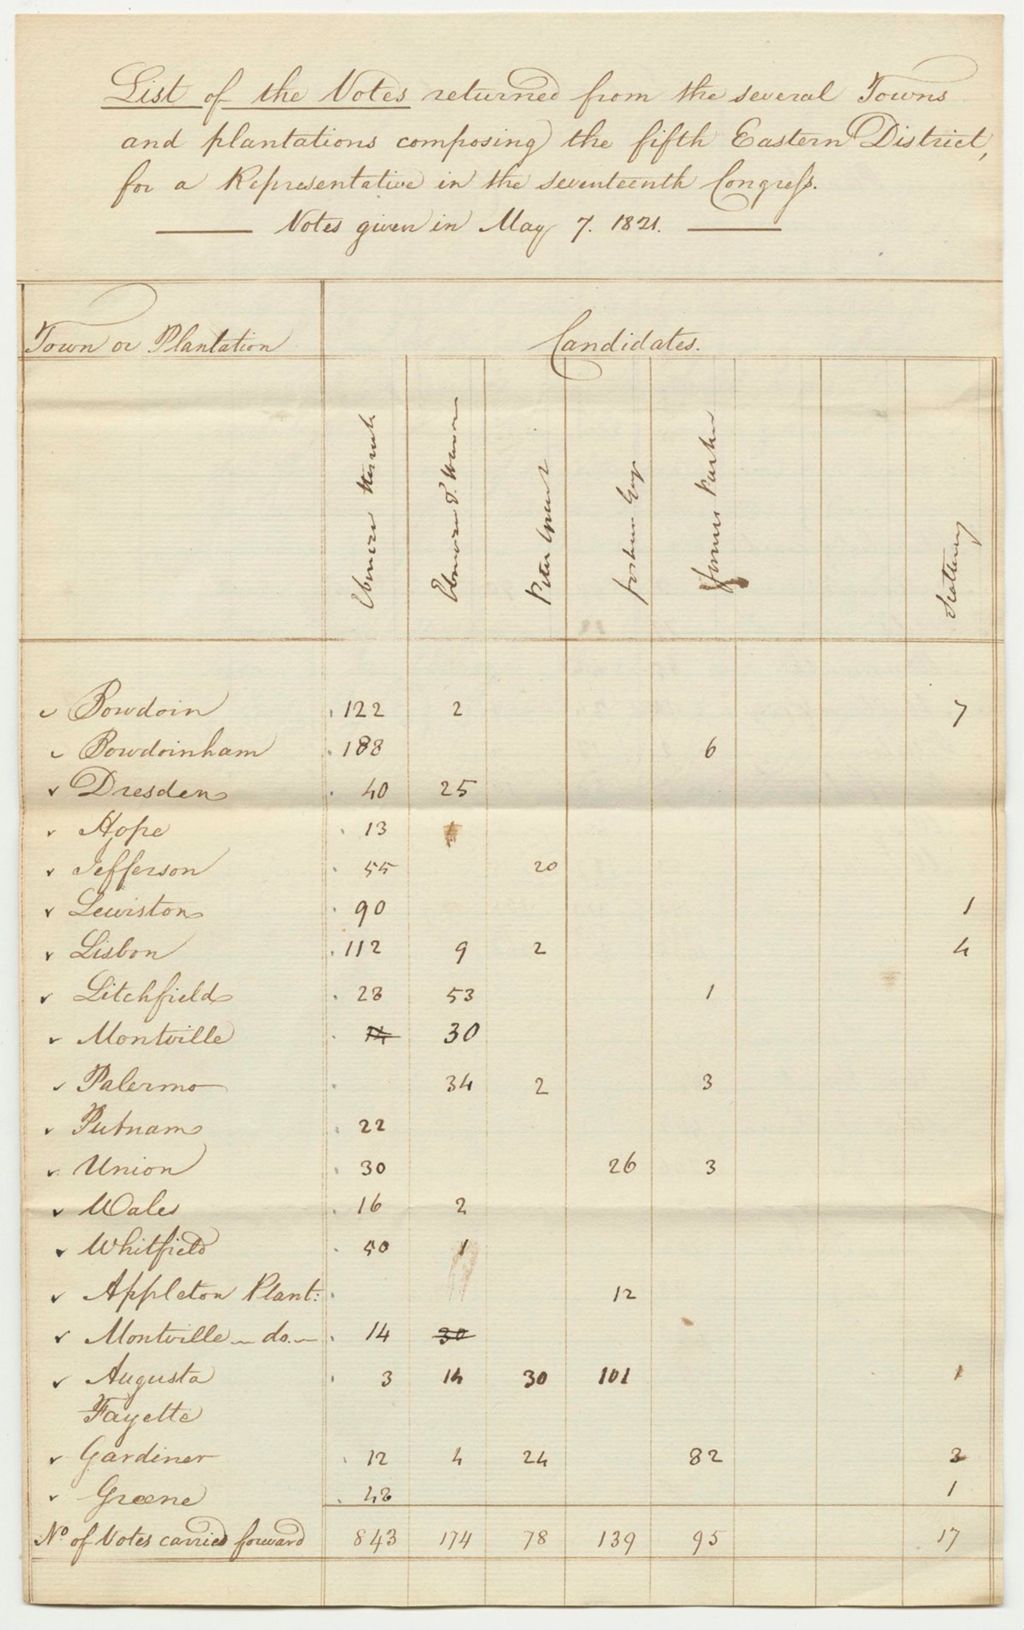 List of the Votes returned from the several Towns
and plantations composing the fifth Eastern District,
for a Representative in the seventeenth Congress.
Votes given in May 7. 1821.
Town or Plantation Candidates.
Ebenezer Herrick Ebenezer T. Warren Peter Grant Joshua Gage James Parker Scattering
Bowdoin 122 2 7
Bowdoinham 188 6
Dresden 40 25
Hope 13
Jefferson 55 20
Lewiston 90 1
Lisbon 112 9 2 4
Litchfield 28 53 1
Montville 14 30
Palermo 34 2 3
Putnam 22
Union 30 26 3
Wales 16 2
Whitfield 50 1
Appleton Plant: 12
Montville do. 14 30
Augusta 3 14 30 101 1
Fayette
Gardiner 12 4 24 82 3
Greene 48 1
No of Votes carried forward 843 174 78 139 95 17